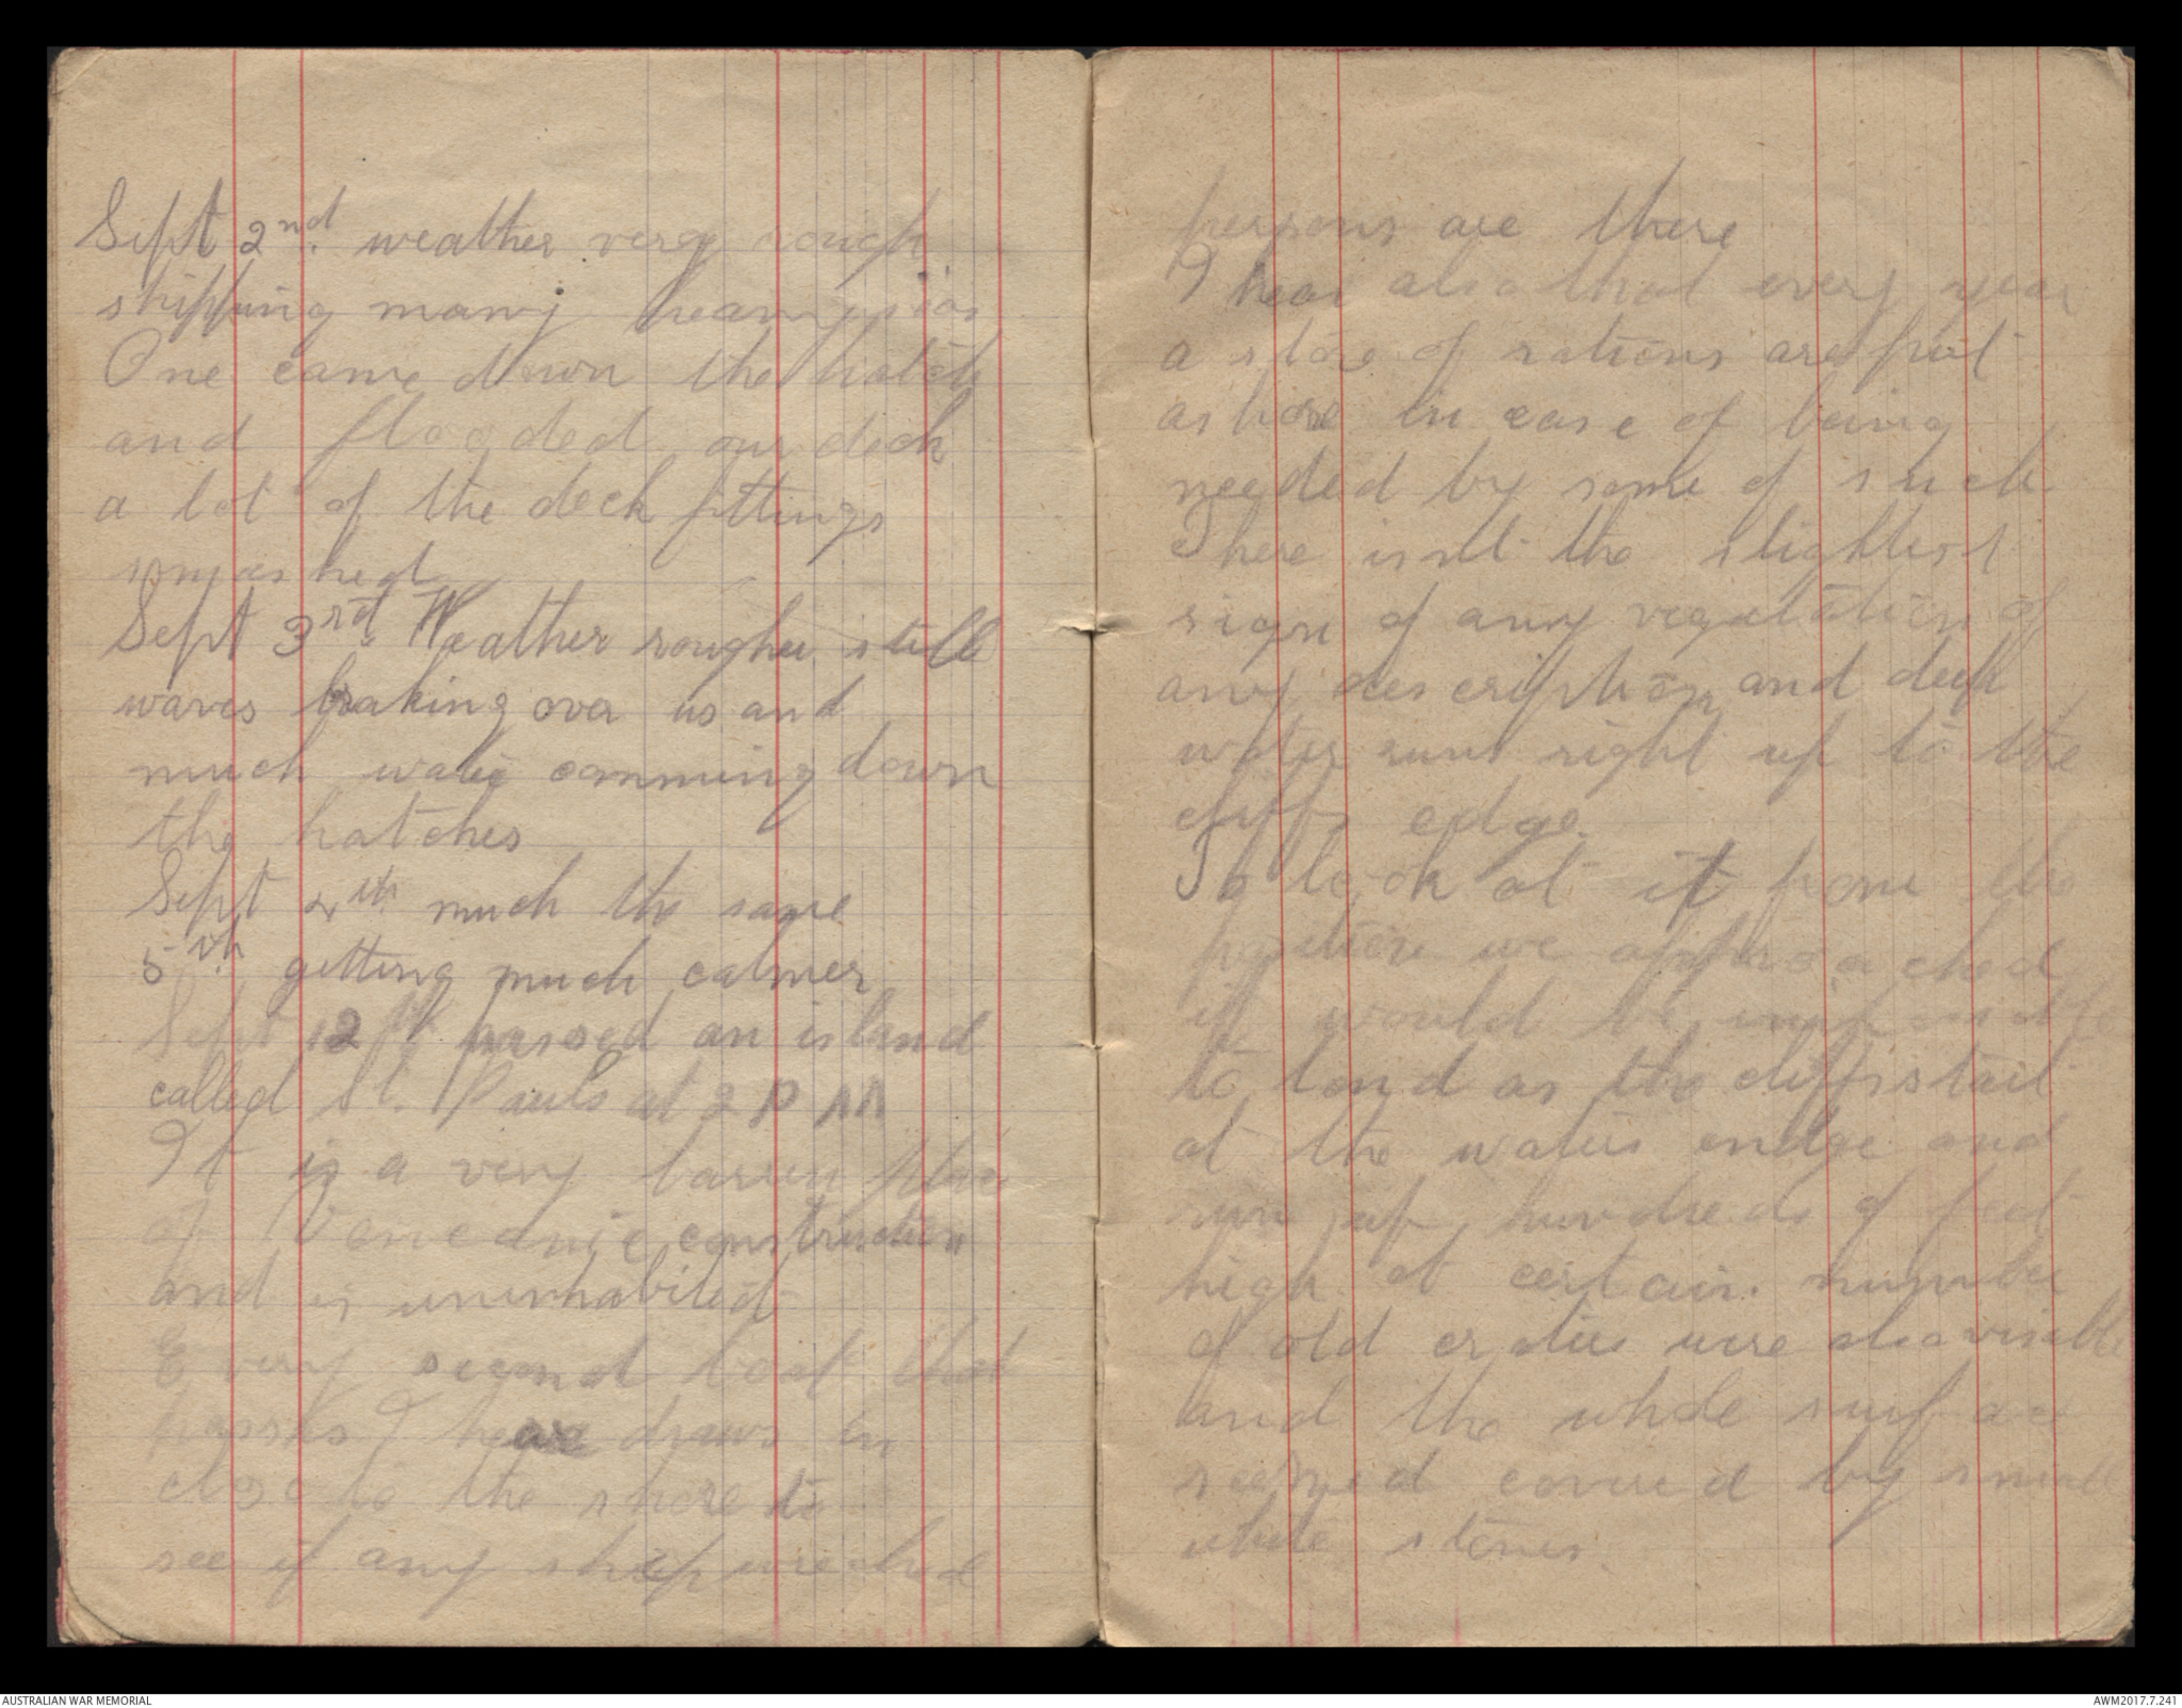 Sept 2nd. weather very rough
shipping many heavy seas
One came down the hatch
and flooded our deck
a lot of the deck fittings
smashed
Sept 3rd. Weather rougher still
waves braking over us and
much water comming down
the hatches
Sept 4th much the same
5th getting much calmer
Sept 12th passed an island
called St. Pauls at 2 PM
It is a very barren place
of construction
and is uninhabited
Every second boat that
passes I hear draws in
close to the shore to
see if any shipwrecked
persons are there
I hear also that every year
a store of rations are put
ashore in case of being
needed by some of such
There isnt the slightest
sign of any vegetation of
any description and deep
water runs right up to the
cliffs edge.
To look at it from the
position we approached
it would be impossible
to land as the cliffs start
at the waters endge and
run up hundreds of feet
high at certain. number
of old craters were also visible
and the whole surface
seemed covered by small
white stones.
AUSTRALIAN WAR MEMORIAL
AWM2017.7.241